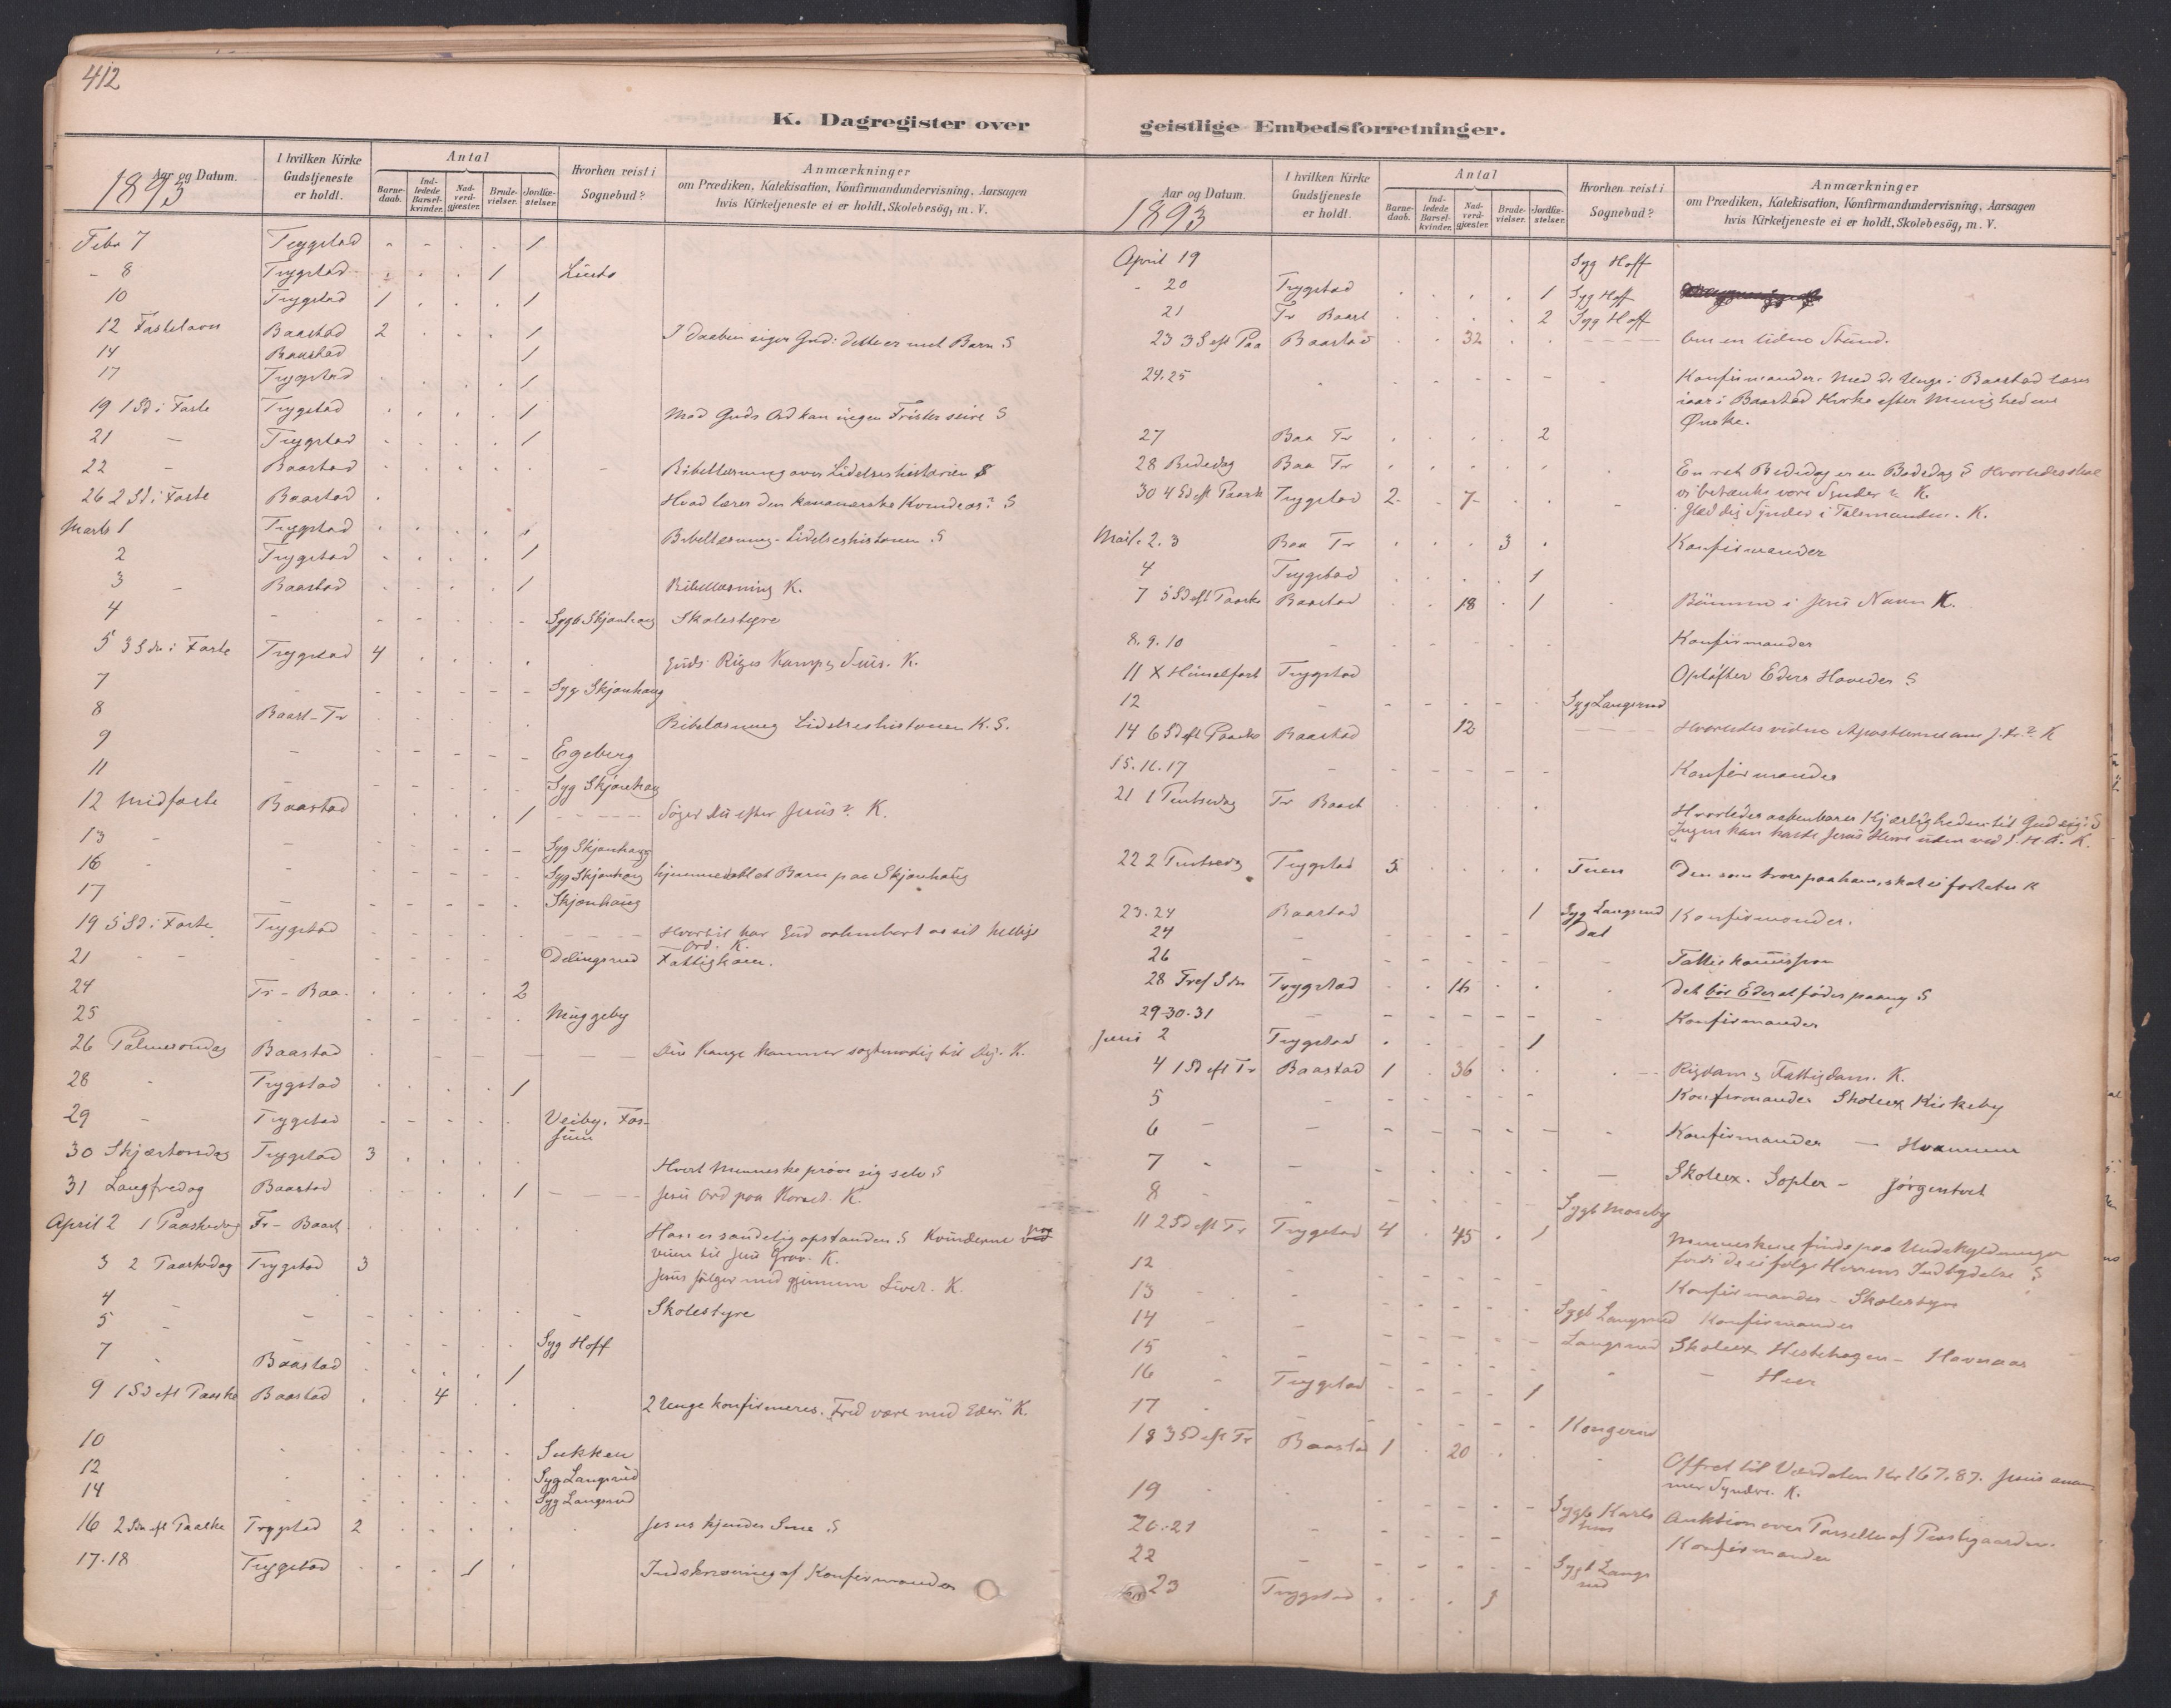 412
K. Dagregister over
1893
Aar og Datum.
I hvilken Kirke Gudstjeneste er holdt.
Antal
Barnedaab.
Indledede Barselkvinder.
Nadverdgjæster.
Brudevielser.
Jordfæstelser.
Hvorhen reist i Sognebud?
Anmærkninger
om Prædiken, Katekisation, Konfirmandundervisning, Aarsagen
hvis Kirketjeneste ei er holdt, Skolebesög, m. V.
Febr 7 Trygstad - - . . 1
- 8 Trygstad . . . 1
10 Trygstad 1 . . . 1
12 Fastelavn Baastad 2 . . . 1 I Daaben siger Gud: dette er mit Barn S
14 Baastad 1
17 Trygstad . . . . 1
19 1 Sd i Faste Trygstad . . . . 1 Mod Guds Ord kan ingen Frister seire S
21 - Trygstad . . . . 1
22 - Baastad . . . . . - Bibellæsning over Lidelseshistorien S
26 2 Sd i Faste Baastad . Hvad lærer den kananæiske Kvinde os? S
Marts 1 Trygstad . . . . . Bibellæsning - Lidelseshistorien S
2 Trygstad . . . . 1
3 - Baastad . . . . 1 Bibellæsning K.
4 - - - - - - Sygb Skjønhaug Skolestyre
5 3 Sdn i Faste Trygstad 4 . . . . Guds Riges Kamp og Seir. K.
7 - - - - - - Syg Skjønhaug
8 Baast-Tr . . . . . Bibellæsning Lidelseshistorien K. S.
9 - - - - - - Egeberg
11 - - - - - - Syg Skjønhaug
12 Midfaste Baastad . . . . 1 - - - - Søger du efter Jesus? K.
13 - - - - - - - Syg Skjønhaug
16 - - - - - - Syg Skjønhaug hjemmedøbt et Barn paa Skjønhaug
17 - - - - - - Skjønhaug
19 5 Sd i Faste Trygstad - - - - - - - - - Hvortil har Gud aabenbart os sit hellige
Ord. K.
21 - - - - - - - Delingsrud Fattigkom.
24 Tr - Baa. . . . . 2
25 - - - - - - Muggeby
26 Palmesondag Baastad . - - - - - - Din Konge kommer sagtmodig til dig. K.
28 - Trygstad . . . . 1
29 - Trygstad - - - - - Veiby. Fos-
sum
30 Skjærtorsdag Trygstad 3 . . . . Hvert Menneske prøve sig selv S
31 Langfredag Baastad . . . . 1 - - - - Jesu Ord paa Korset. K.
April 2 1 Paaskedag Tr - Baast . . . . . Han er sandelig opstanden. S Kvinderne ved paa
veien til Jesu Grav. K.
3 2 Paaskedag Trygstad 3 Jesus følger med gjennem Livet. K.
4 - - - - - - - Skolestyre
5 - - - - - - - Syg Hoff
7 - Baastad . . . . 1
9 1 Sd eft Paaske Baastad . . 4 . . . 2 Unge konfirmeres. "Fred være med Eder." K.
10 - . . . . . Sukken
12 - . . . . . Syg Langsrud
14 - . . . . . Syg Langsrud
16 2 Sdn eft Paaske Trygstad 2 . . . . . Jesus kjender Sine S
17.18 Trygstad . . . 1 . Indskrivning af Konfirmander
geistlige Embedsforretninger.
1893
Aar og Datum.
I hvilken Kirke Gudstjeneste er holdt.
Antal
Barnedaab.
Indledede Barselkvinder.
Nadverdgjæster.
Brudevielser.
Jordfæstelser.
Hvorhen reist i Sognebud?
Anmærkninger
om Prædiken, Katekisation, Konfirmandundervisning, Aarsagen
hvis Kirketjeneste ei er holdt, Skolebesög, m. V.
April 19 Syg Hoff
- 20 Trygstad . . . . 1 Syg Hoff
21 Tr Baast . . . . 2 Syg Hoff
23 3 S eft Paa Baastad . . 32 . . - - - - - Om en liden Stund.
24.25 - . . . - - - Konfirmander. Med de Unge i Baastad læses
iaar i Baastad Kirke efter Menighedens
Ønske.
27 Baa Tr . . . . 2
28 Bededag Baa Tr . . . . . . En ret Bededag er en Bodedag S Hvorledes skal
vi betænke vore Synder? K.
30 4 Sd eft Paask Trygstad 2- . 7- . . - Glæd dig Synder i Talsmanden. K.
Mai 1. 2. 3 Baa Tr . . . 3 . Konfirmander
4 Trygstad . . . . 1
7 5 Sd eft Paaske Baastad . . 18 . 1 . Bønnen i Jesu Navn K.
8. 9. 10 - - - - - - Konfirmander
11 X Himmelfart Trygstad Opløfter Eders Hoveder S
12 - - - - - - Syg Langsrud
14 6 Sd eft Paaske Baastad 12 - - - - Hvorledes vidne Apostlerne om J. Kr? K
15. 16. 17 - - - - - - Konfirmander
21 1 Pintsedag Tr Baast . Hvorledes aabenbarer Kjærligheden til Gud sig? S
"Ingen kan kalde Jesus Herre uden ved d. H A. K.
22 2 Pintsedag Trygstad 5 . . . . Tuen Den som tror paa ham, skal ei fortabes K
23.24 Baastad 1 Syg Langsrud Konfirmander.
24 - - - - - - Dal
26 - - - - - - - Fattigkommission
28 Tref Sdn Trygstad . . 16 . . . Det bør Eder at fødes paany S
29-30-31 - - - - - - - Konfirmander
Juni 2 Trygstad . - - 1
4 1 Sd eft Tr Baastad 1 . 36 . . . -- Rigdom og Fattigdom. K.
5 - - - - - - Konfirmander Skoleex Kirkeby
6 - - - - - - - - Konfirmander — Hvammen
7 - - - - - - - — Skoleex. Sopler - Jørgentvet
8 - - - - - - - Sygb Moseby
11 2 Sd eft Tr Trygstad 4 . 45 . 1 Menneskene finde paa Undskyldninger
fordi de ei følge Herrens Indbydelse S
12 - - - - - - - Konfirmander - Skolestyre
13 - - - - - - - Sygb Langsrud Konfirmander
14 - - - - - - - Langsrud Skoleex Hestehagen - Havnaas
15 - - - - - - - - - Heer
16 - Trygstad - - - - 1
17 - - - - - - - Kongerud
18 3 Sd eft Tr Baastad 1 . 20 . . Offret til Værdalen Kr 167.87. Jesus anam-
mer Syndere. K.
19 - - - - - - - Sygb Karls-
hus Auktion over Parseller af Præstegaarden.
20-21 - - - - - - Konfirmander
22 - - - - - - Sygb Langs
rud
23 Trygstad . . . 1